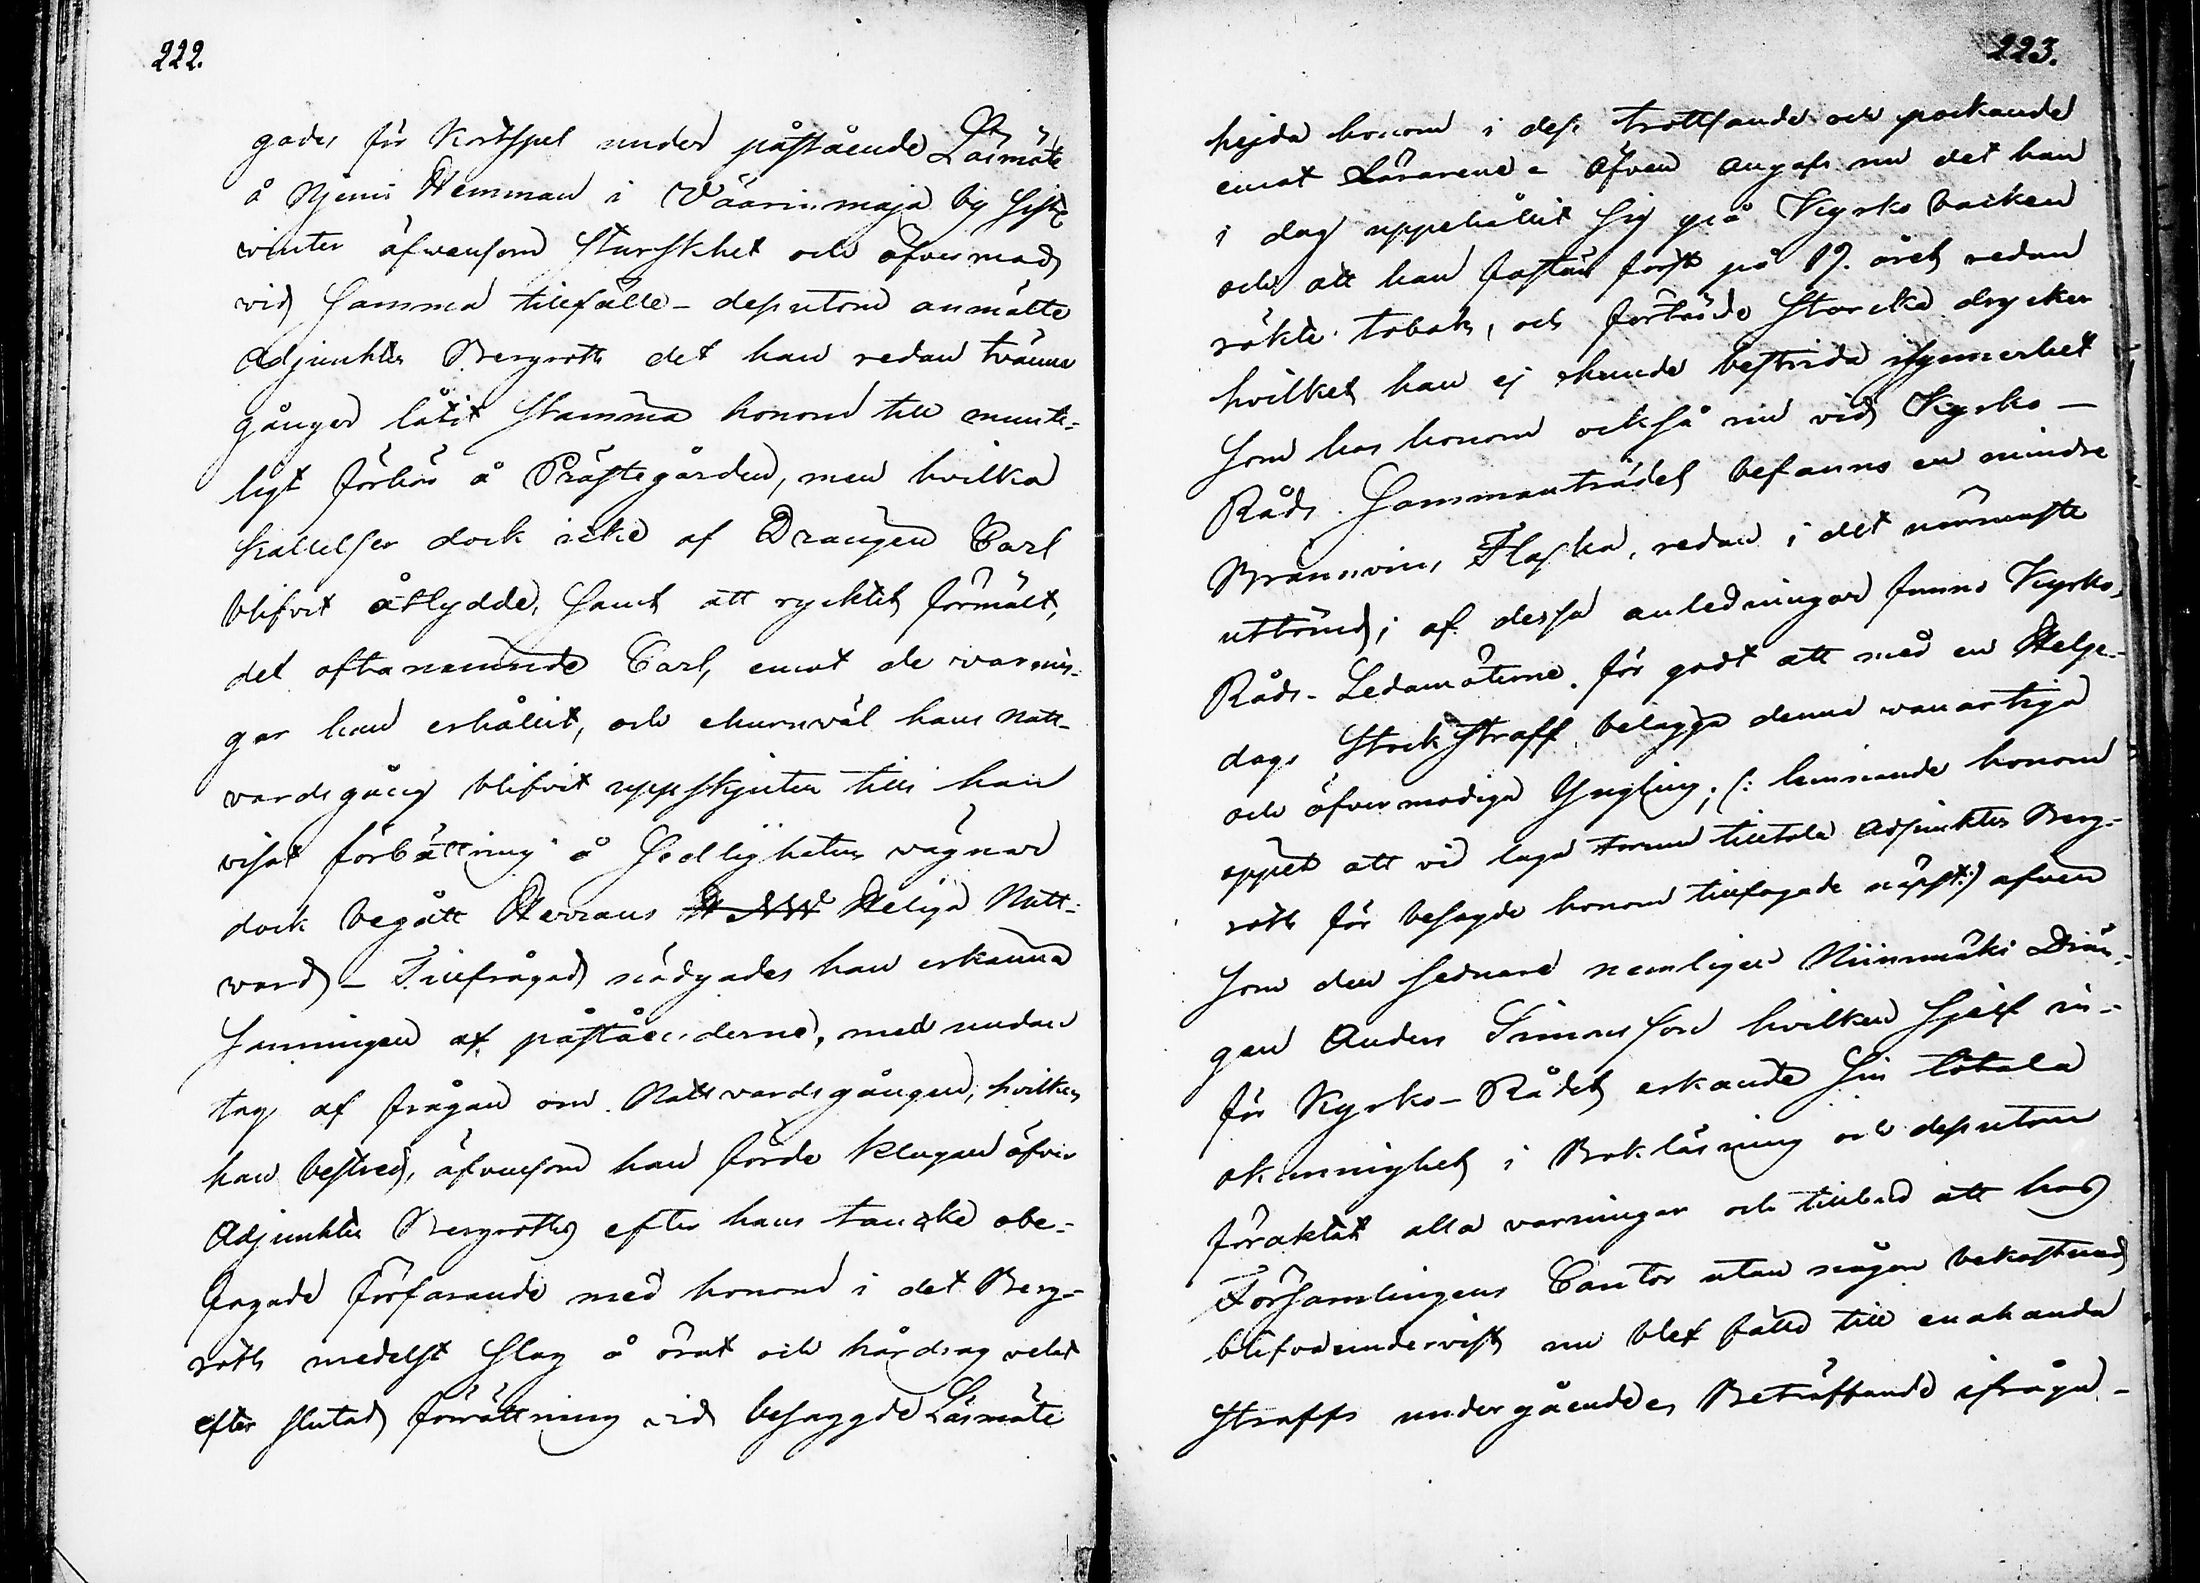 222.
gades för Kortspel under påstående Läsmöte
å Njemi Hemman i Väärinmaja by sistl
winter äfwensom sturskhet och öfvermod
vid samma tillfälle – dessutom anmälte
Adjunkten Bergroth det han redan tvänne
gånger låtit stämma honom till munte-
ligt förhör å Prästegården, men hvilka
kallelser dock icke af Drängen Carl
blifvit åtlydde, samt att ryktet förmält,
det oftanämnde Carl, emot de varnin-
gar han erhållit, och ehuruväl hans Natt-
vardsgång blifvit uppskjuten tills han
visat förbättring å Sedlighetens vägnar
dock begått Herrans Heliga Natt-
ward – Tillfrågad nödgades han erkänna
sanningen af påståenderne, med undan-
tag af frågan om Nattvardsgången, hvilken
han bestred, äfvensom han förde klagan öfver
Adjunkten Bergroths efter hans tanke obe-
fogade förfarande med honom i det Berg-
roth medelst slag å örat och hårdrag velat
efter slutad förrättning vid besagde Läsmöte
223.
hejda honom i dess trottsande och pockande
emot Lärarene – Äfven angafs nu det han
i dag uppehållit sig på Kyrko backen
och att han fastän först på 19. året redan
rökte tobak, och förtärde starcka drycker
hvilket han ej kunde bestrida isynnerhet
som hos honom också nu vid Kyrko –
Råds Sammanträdet befanns en mindre
Brännvins Flaska, redan i det närmaste
uttömd; af dessa anledningar funno Kyrko-
Råds-Ledamöterne för godt att med en Helge-
dags Stock straff belägga denne vanartiga
och öfvermodiga Yngling; (: lemnande honom
öppet att vid laga Forum tilltala Adjunkten Berg-
roth för besagde honom tillfogade näpst:) äfven
som den sednare nemligen Niinimäki Drän-
gen Anders Simonsson hvilken sjelf in-
för Kyrko-Rådet erkände sin totala
okunnighet i Bokläsning och dessutom
föraktat alla varningar och tillbud att hos
Församlingens Cantor utan någon bekostnad
blifva undervist nu blef fälld till enahanda
straffs undergående. Beträffande ifråga-